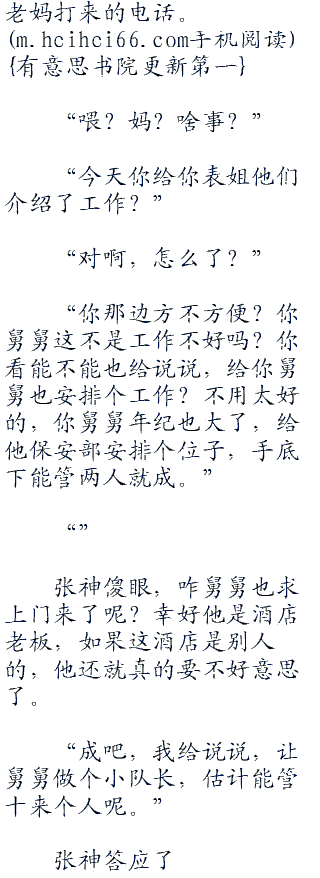 老妈打来的电话。
(m.hcihci66.com手机阅读)
{有意思书院更新第一}
“喂？妈？啥事？”
“今天你给你表姐他们
介绍了工作？”
“对啊，怎么了？”
“你那边方不方便？你
舅舅这不是工作不好吗？你
看能不能也给说说，给你舅
舅也安排个工作？不用太好
的，你舅舅年纪也大了，给
他保安部安排个位子，手底
下能管两人就成。”
“”
张神傻眼，咋舅舅也求
上门来了呢？幸好他是酒店
老板，如果这酒店是别人
的，他还就真的要不好意思
了。
“成吧，我给说说，让
舅舅做个小队长，估计能管
十来个人呢。”
张神答应了